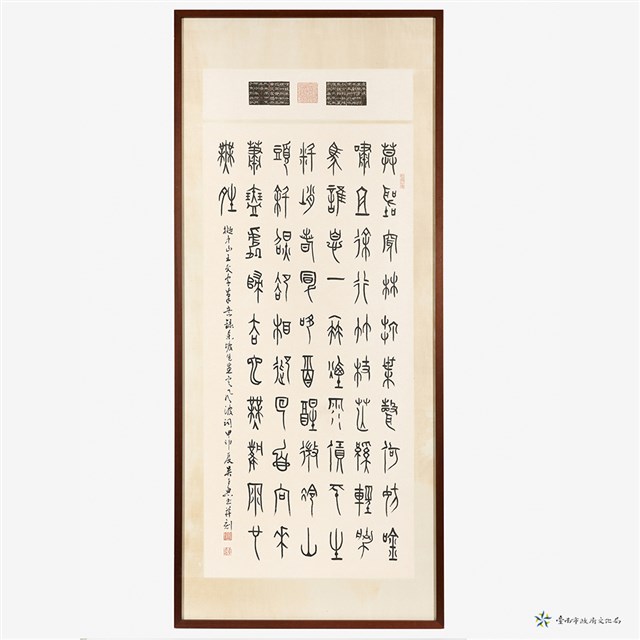 莫聽穿林打葉聲何妨吟
嘯且徐行竹杖芒鞋輕勝
馬誰怕一蓑煙雨任平生
料峭春風吹酒醒微冷山
頭斜照卻相迎回首向來
蕭瑟處歸去也無風雨也
無晴
中山王文字筆意錄東坡定風波詞甲申夏
臺南市政府文化局